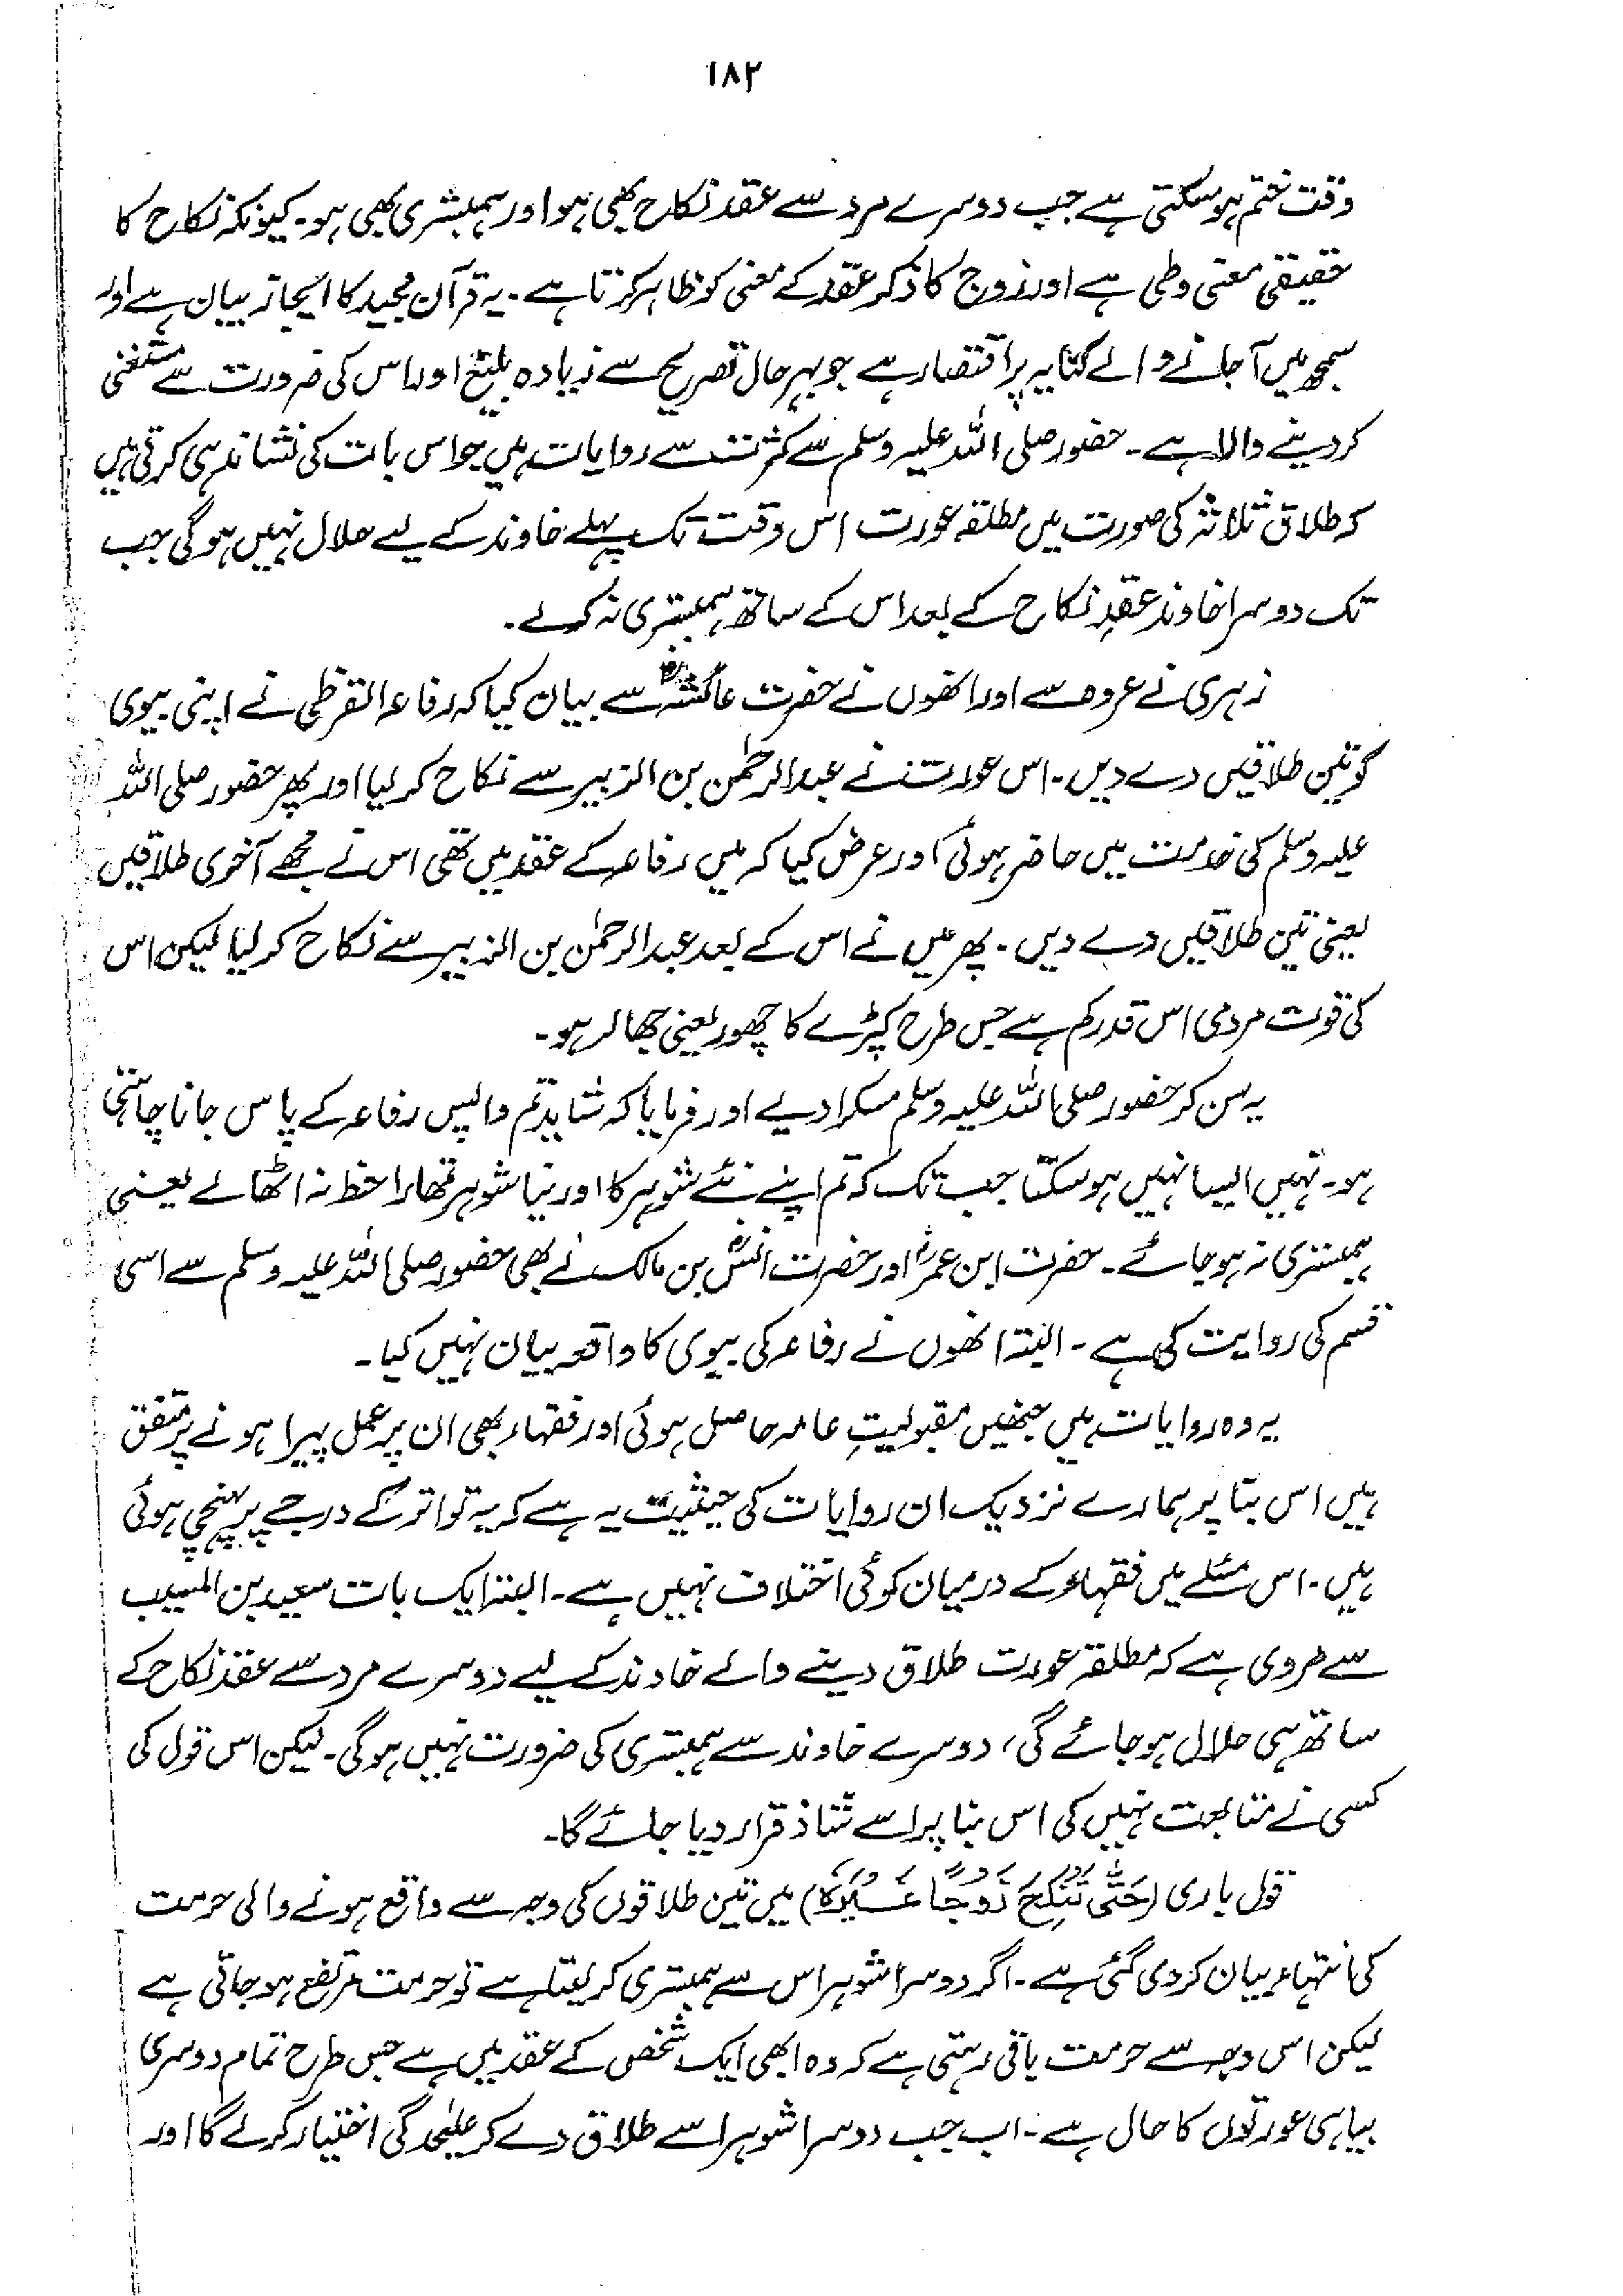 ۱۸۲
وقت ختم ہوسکتی ہے جب دوسرے مرد سے عقد نکاح بھی ہو اور ہمبستری بھی ہو۔ کیونکہ نکاح کا
حقیقی معنی وطی ہے اور زوج کا ذکر عقد کے معنی کو ظاہر کرتا ہے۔ یہ قرآن مجید کا ایجاز بیان ہے اور
سمجھ میں آجانے والے کنایہ پر اقتصار ہے جو بہرحال تصریح سے زیادہ بلیغ اور اس کی ضرورت سے مستغنی
کر دینے والا ہے۔ حضور صلی اللہ علیہ وسلم سے کثرت سے روایات ہیں جو اس بات کی نشاندہی کرتی ہیں
کہ طلاق ثلاثہ کی صورت میں مطلقہ عورت اس وقت تک پہلے خاوند کے لیے حلال نہیں ہوگی جب
تک دوسرا خاوند عقدِ نکاح کے بعد اس کے ساتھ ہمبستری نہ کرلے۔
زہری نے عروہ سے اور انھوں نے حضرت عائشہؓ سے بیان کیا کہ رفاعہ القرظی نے اپنی بیوی
کو تین طلاقیں دے دیں۔ اس عورت نے عبدالرحمٰن بن الزبیر سے نکاح کر لیا اور پھر حضور صلی اللہ
علیہ وسلم کی خدمت میں حاضر ہوئی اور عرض کیا کہ میں رفاعہ کے عقد میں تھی اس نے مجھے آخری طلاقیں
یعنی تین طلاقیں دے دیں۔ پھر میں نے اس کے بعد عبدالرحمٰن بن الزبیر سے نکاح کر لیا لیکن اس
کی قوت مردمی اس قدر کم ہے جس طرح کپڑے کا چھور یعنی جھالر ہو۔
یہ سن کر حضور صلی اللہ علیہ وسلم مسکرا دیے اور فرمایا کہ شاید تم واپس رفاعہ کے پاس جانا چاہتی
ہو۔ نہیں ایسا نہیں ہوسکتا جب تک کہ تم اپنے نئے شوہر کا اور نیا شوہر تمھارا حظ نہ اٹھالے یعنی
ہمبستری نہ ہو جائے۔ حضرت ابن عمرؓ اور حضرت انسؓ بن مالک نے بھی حضور صلی اللہ علیہ وسلم سے اسی
قسم کی روایت کی ہے۔ البتہ انھوں نے رفاعہ کی بیوی کا واقعہ بیان نہیں کیا۔
یہ وہ روایات ہیں جنھیں مقبولیتِ عامہ حاصل ہوئی اور فقہاء بھی ان پر عمل پیرا ہونے پر متفق
ہیں اس بنا پر ہمارے نزدیک ان روایات کی حیثیت یہ ہے کہ یہ تواتر کے درجے پر پہنچی ہوئی
ہیں۔ اس مسئلے میں فقہاء کے درمیان کوئی اختلاف نہیں ہے۔ البتہ ایک بات سعید بن المسیب
سے مروی ہے کہ مطلقہ عورت طلاق دینے والے خاوند کے لیے دوسرے مرد سے عقد نکاح کے
ساتھ ہی حلال ہو جائے گی، دوسرے خاوند سے ہمبستری کی ضرورت نہیں ہوگی۔ لیکن اس قول کی
کسی نے متابعت نہیں کی اس بنا پر اسے شاذ قرار دیا جائے گا۔
قول باری (حَتّٰی تَنْکِحَ زَوْجًا غَیْرَہٗ) میں تین طلاقوں کی وجہ سے واقع ہونے والی حرمت
کی انتہاء بیان کر دی گئی ہے۔ اگر دوسرا شوہر اس سے ہمبستری کر لیتا ہے تو حرمت مرتفع ہو جاتی ہے
لیکن اس وجہ سے حرمت باقی رہتی ہے کہ وہ ابھی ایک شخص کے عقد میں ہے جس طرح تمام دوسری
بیاہی عورتوں کا حال ہے۔ اب جب دوسرا شوہر اسے طلاق دے کر علیٰحدگی اختیار کرلے گا اور